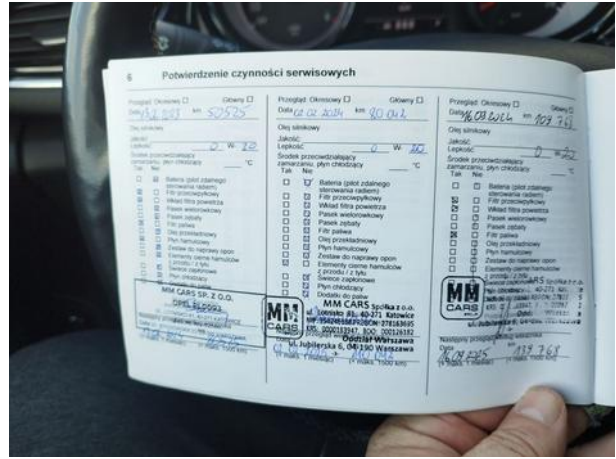 6 Potwierdzenie czynności serwisowych
Przegląd: Okresowy Główny
Data km 50525
Olej silnikowy
Jakość:
Lepkość 0 W- 20
Środek przeciwdziałający
zamarzaniu, płyn chłodzący °C
Tak Nie
Bateria (pilot zdalnego
sterowania radiem)
Filtr przeciwpyłkowy
Wkład filtra powietrza
Pasek wielorowkowy
Pasek zębaty
Filtr paliwa
Olej przekładniowy
Płyn hamulcowy
Zestaw do naprawy opon
Elementy cierne hamulców
z przodu / z tyłu
Świece zapłonowe
Płyn chłodzący
MM CARS SP. Z O.O.
Przegląd: Okresowy Główny
Data 02 02 2024 km 80 042
Olej silnikowy
Jakość:
Lepkość 0 W- 20
Środek przeciwdziałający
zamarzaniu, płyn chłodzący °C
Tak Nie
Bateria (pilot zdalnego
sterowania radiem)
Filtr przeciwpyłkowy
Wkład filtra powietrza
Pasek wielorowkowy
Pasek zębaty
Filtr paliwa
Olej przekładniowy
Płyn hamulcowy
Zestaw do naprawy opon
Elementy cierne hamulców
z przodu / z tyłu
Świece zapłonowe
Płyn chłodzący
Dodatki do paliw
MM CARS
MM CARS Spółka z o.o.
ul. Lotnisko 81, 40-271 Katowice
Oddział Warszawa
ul. Jubilerska 6, 04-190 Warszawa
(+ maks. 1 miesiąc) (+ maks. 1500 km)
Przegląd: Okresowy Główny
Data 16.09.2024 km 109 768
Olej silnikowy
Jakość:
Lepkość 0 W- 20
Środek przeciwdziałający
zamarzaniu, płyn chłodzący °C
Tak Nie
Bateria (pilot zdalnego
sterowania radiem)
Filtr przeciwpyłkowy
Wkład filtra powietrza
Pasek wielorowkowy
Pasek zębaty
Filtr paliwa
Olej przekładniowy
Płyn hamulcowy
Zestaw do naprawy opon
Elementy cierne hamulców
z przodu / z tyłu
MM CARS
Następny przegląd
Data km
16.09.2025 139 768
(+ maks. 1 miesiąc) (+ maks. 1500 km)